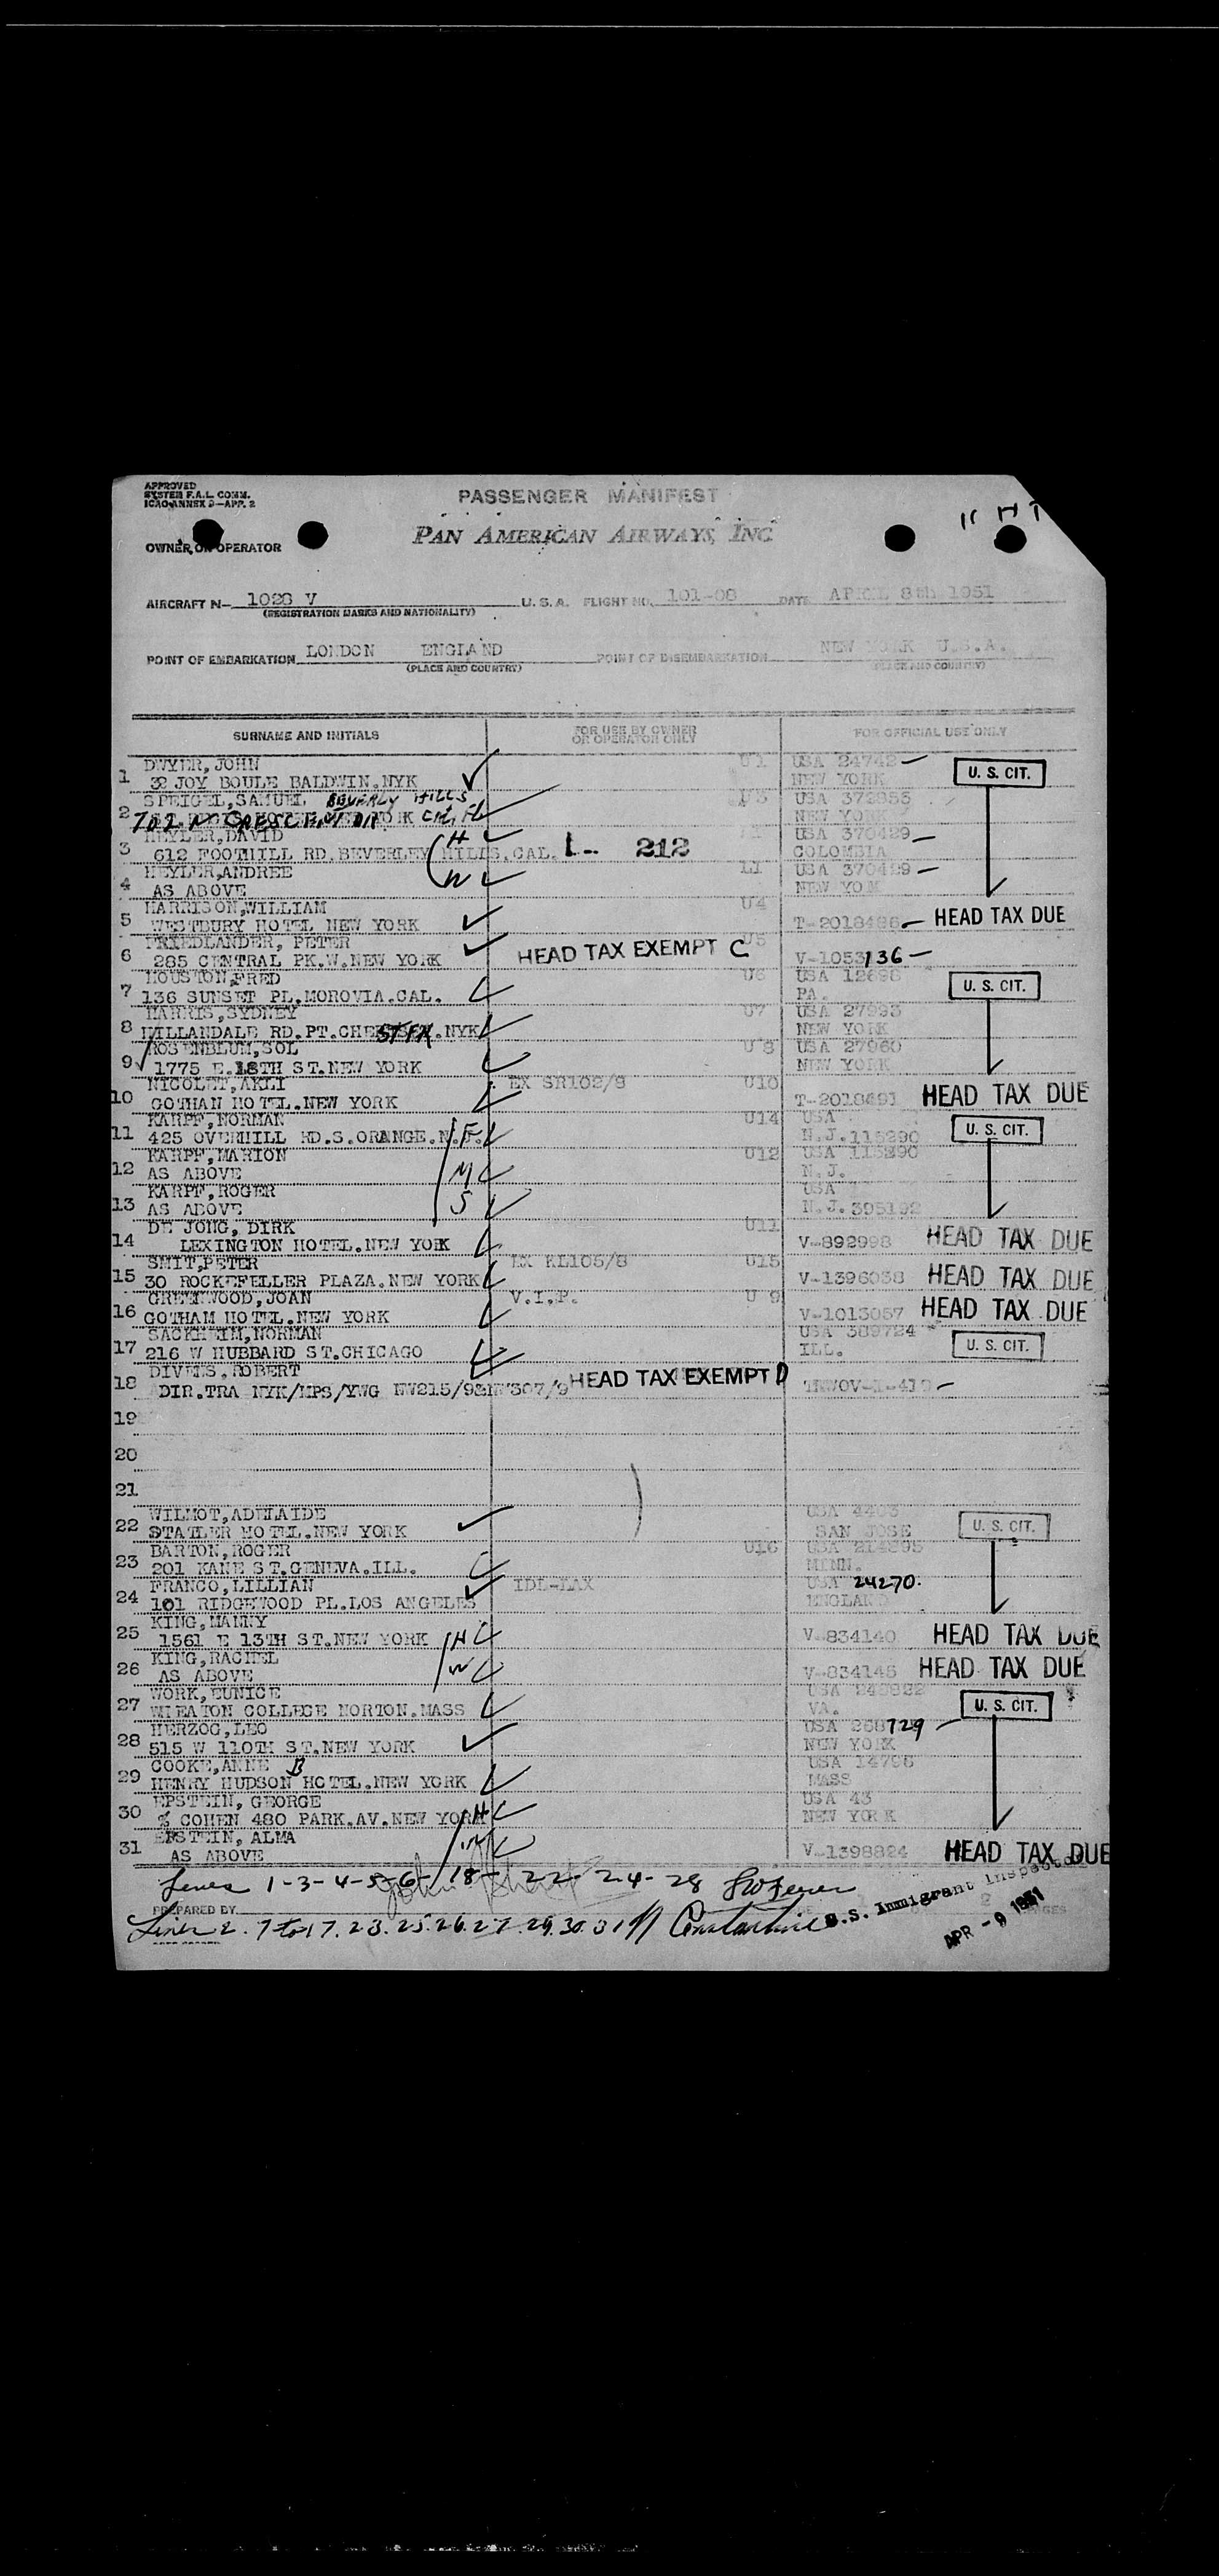 APPROVED
SYSTEM F.A.L. COMM.
ICAO ANNEX 9—APP. 2
PASSENGER MANIFEST
OWNER OR OPERATOR
PAN AMERICAN AIRWAYS, INC
11 HT
AIRCRAFT N— 1028 V U.S.A. FLIGHT NO. 101-08 DATE APRIL 8th 1951
(REGISTRATION MARKS AND NATIONALITY)
POINT OF EMBARKATION LONDON ENGLAND POINT OF DISEMBARKATION NEW YORK U.S.A.
(PLACE AND COUNTRY) (PLACE AND COUNTRY)
SURNAME AND INITIALS FOR USE BY OWNER OR OPERATOR ONLY FOR OFFICIAL USE ONLY
DWYER, JOHN U1 USA 24742
1 32 JOY BOULE BALDWIN.NYK NEW YORK U. S. CIT.
SPEIGEL, SAMUEL BEVERLY HILLS USA 372955
2 702 N CRESCENT DR NEW YORK
HEYLER, DAVID H USA 370429
3 612 FOOTHILL RD.BEVERLEY HILLS,CAL. 1-- 212 COLOMBIA
HEYLER,ANDREE W USA 370429
4 AS ABOVE NEW YO
HARRISON,WILLIAM U4
5 WESTBURY HOTEL NEW YORK T-2018486 HEAD TAX DUE
FRIEDLANDER, PETER U5
6 285 CENTRAL PK.W.NEW YORK HEAD TAX EXEMPT C V-1053136
HOUSTON,FRED U6 USA 12698
7 136 SUNSET PL.MOROVIA.CAL. PA. U. S. CIT.
HARRIS, SYDNEY U7 USA 27993
8 HILLANDALE RD.PT.CHESTER.NYK NEW YORK
ROSENBLUM,SOL U 8 USA 27960
9 1775 E.18TH ST.NEW YORK NEW YORK
NICOLET,ARLI EX SR102/8 U10
10 GOTHAN HOTEL.NEW YORK T-2018491 HEAD TAX DUE
KARPF,NORMAN U14 USA
11 425 OVERHILL RD.S.ORANGE.N.J. F N.J.115290 U. S. CIT.
KARPF,MARION U12 USA 115290
12 AS ABOVE M N.J.
KARPF,ROGER USA
13 AS ABOVE S N.J.395192
DE JONG, DIRK U11
14 LEXINGTON HOTEL.NEW YORK V-892998 HEAD TAX DUE
SMIT,PETER EX KL105/8 U15
15 30 ROCKEFELLER PLAZA.NEW YORK V-1396038 HEAD TAX DUE
GREENWOOD,JOAN V.I.P. U 9
16 GOTHAM HOTEL.NEW YORK V-1013057 HEAD TAX DUE
SACKHEIM,NORMAN USA 389724
17 216 W HUBBARD ST.CHICAGO ILL. U. S. CIT.
DIVERS, ROBERT
18 DIR.TRA NYK/MPS/YWG NW215/9 307/9 HEAD TAX EXEMPT D
19
20
21
WILMOT,ADELAIDE USA 4405
22 STATLER HOTEL.NEW YORK SAN JOSE U. S. CIT.
BARTON,ROGER U16 USA 214395
23 201 KANE ST.GENEVA.ILL. MINN.
FRANCO,LILLIAN IDL-LAX USA 24270.
24 101 RIDGEWOOD PL.LOS ANGELES ENGLAND
KING,MANNY
25 1561 E 13TH ST.NEW YORK H V-834140 HEAD TAX DUE
KING,RACHEL
26 AS ABOVE W V-834145 HEAD TAX DUE
WORK,EUNICE USA
27 WHEATON COLLEGE NORTON.MASS VA. U. S. CIT.
HERZOG,LEO USA 268729
28 515 W 110TH ST.NEW YORK NEW YORK
COOKE,ANNE B USA 14796
29 HENRY HUDSON HOTEL.NEW YORK MASS
EPSTEIN, GEORGE USA 43
30 % COHEN 480 PARK.AV.NEW YORK H NEW YORK
EPSTEIN, ALMA
31 AS ABOVE W V-1398824 HEAD TAX DUE
Lines 1-3-4-5-6-18-22-24-28
PREPARED BY U.S. Immigrant Inspector
Lines 2. 7 to 17. 23. 25. 26. 27. 29. 30. 31
APR - 9 1951